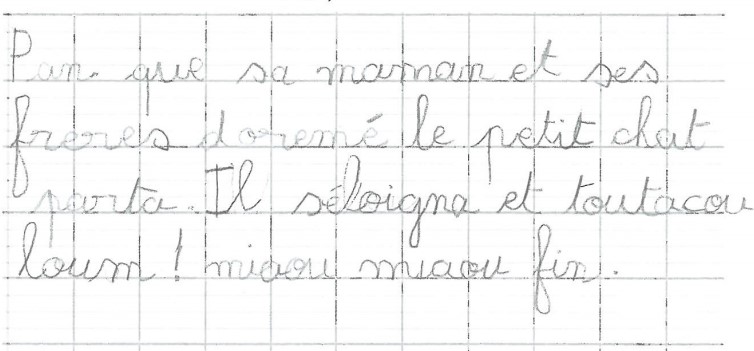 Pan. que sa maman et ses
freres doremé le petit chat
parta. Il séloigna et toutacou
loum! miaou miaou fin.